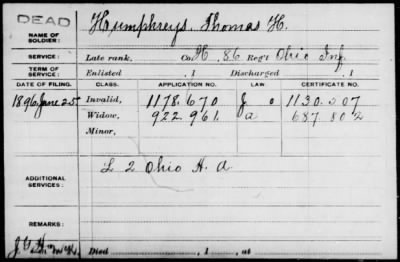 DEAD
NAME OF SOLDIER: Humphreys, Thomas H.
SERVICE: Late rank, Co. H. 86 Reg't Ohio Inf.
TERM OF SERVICE: Enlisted , 1 Discharged , 1
DATE OF FILING. CLASS. APPLICATION NO. LAW CERTIFICATE NO.
1896 June 25 Invalid, 1178.670 J o 1130.007
Widow, 922.961 a 687802
Minor,
ADDITIONAL SERVICES: L 2 Ohio H. A
REMARKS:
Died , 1 , at